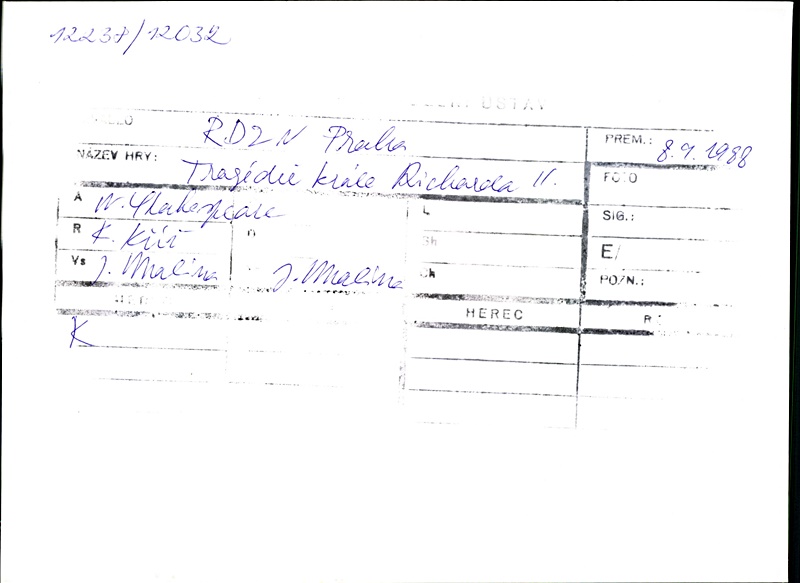 12237/12032
ÚSTAV
RDZN Praha
PREM.: 8.9.1988
NÁZEV HRY: Tragédie krále Richarda II.
FOTO
A W. Shakespeare
L
SIG.:
R K. Kříž
Sh
E/
Vs J. Malina J. Malina
Ch
POZN.:
HEREC
R
K